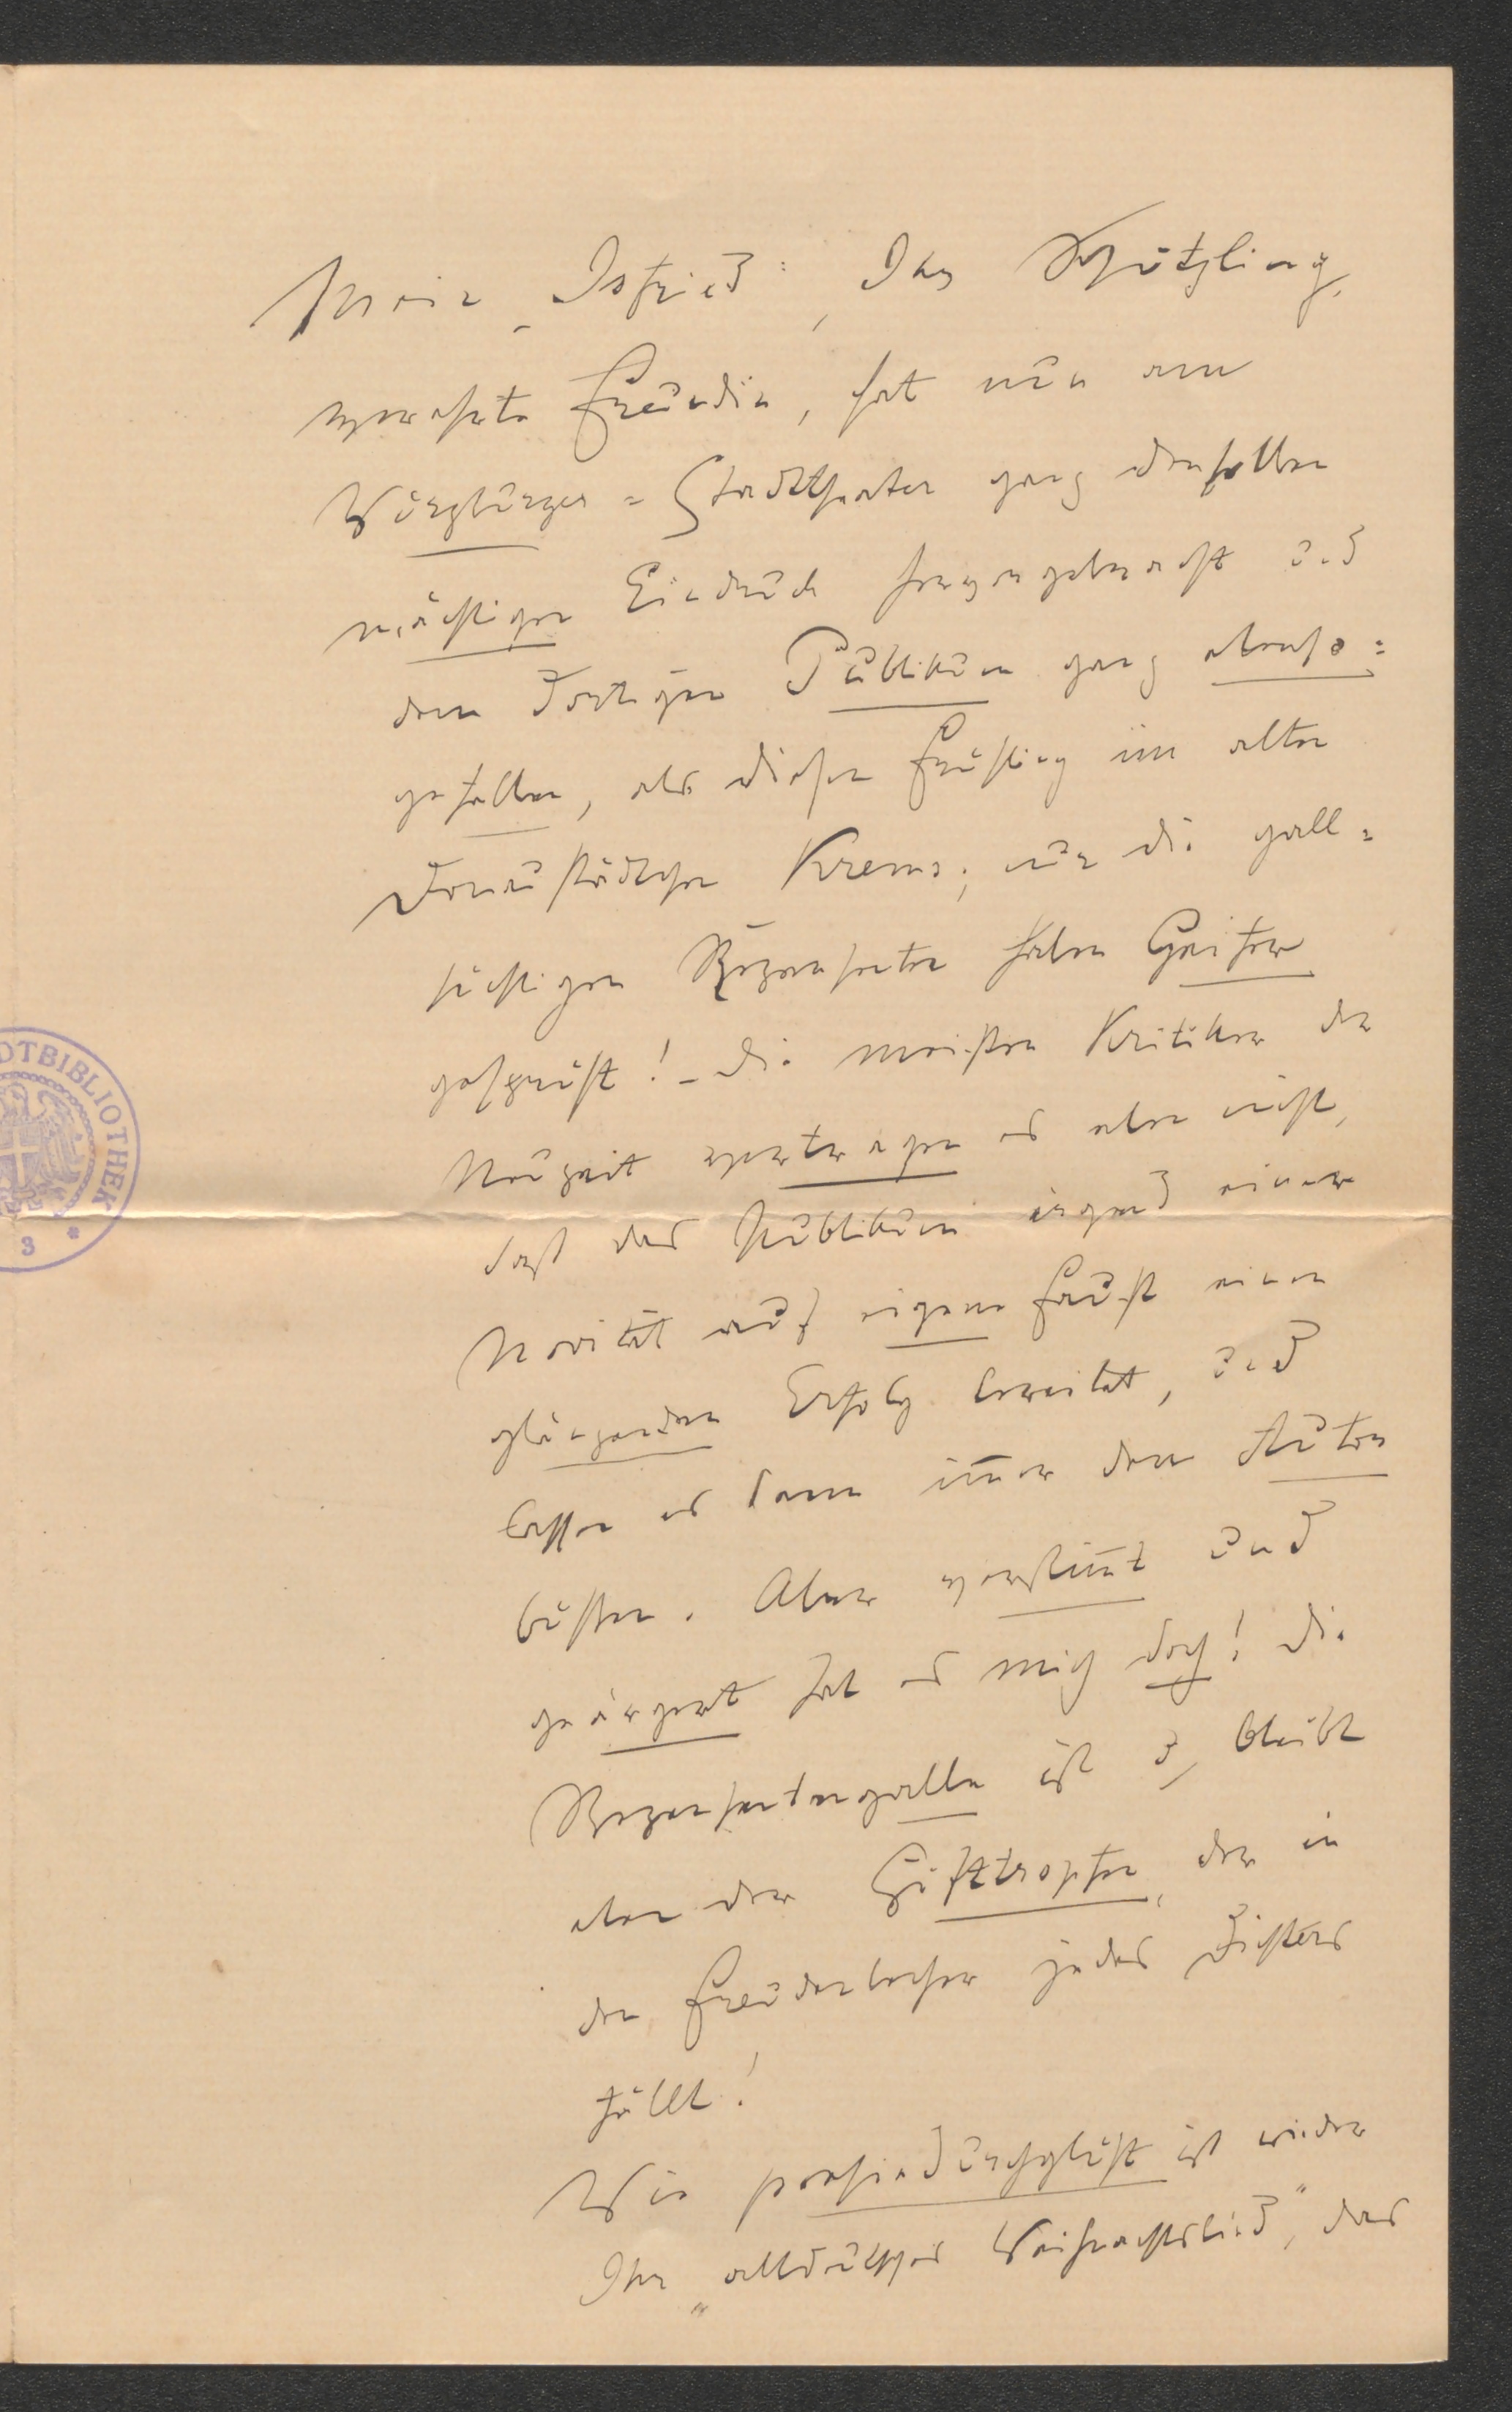 Mein „Isfried", Ihr Schützling,
verehrte Freundin, hat nun am
Würzburger-Stadttheater ganz denselben
mächtigen Eindruck hervorgebracht und
dem dortigen Publikum ganz ebenso-
gefallen, als diesen Frühling im alten
Donaustädtchen Krems; nur die gall-
süchtigen Rezensenten haben Geifer
gesprüht! – Die meisten Kritiker der
Neuzeit vertragen es aber nicht,
daß das Publikum irgend einer
Novität auf eigene Faust einen
glänzenden Erfolg bereitet, und
lassen es dann im̅er den Autor
büßen. Aber verstim̅t und
geärgert hat es mich doch! Die
Rezensentengalle ist u. bleibt
eben der Gifttropfen, der in
den Freudenbecher jedes Dichters
fällt!
Wie poesiedurchglüht ist wieder
Ihr „altdeutsches Weihnachtslied", das
DTBIBLIOTHEK
3 *